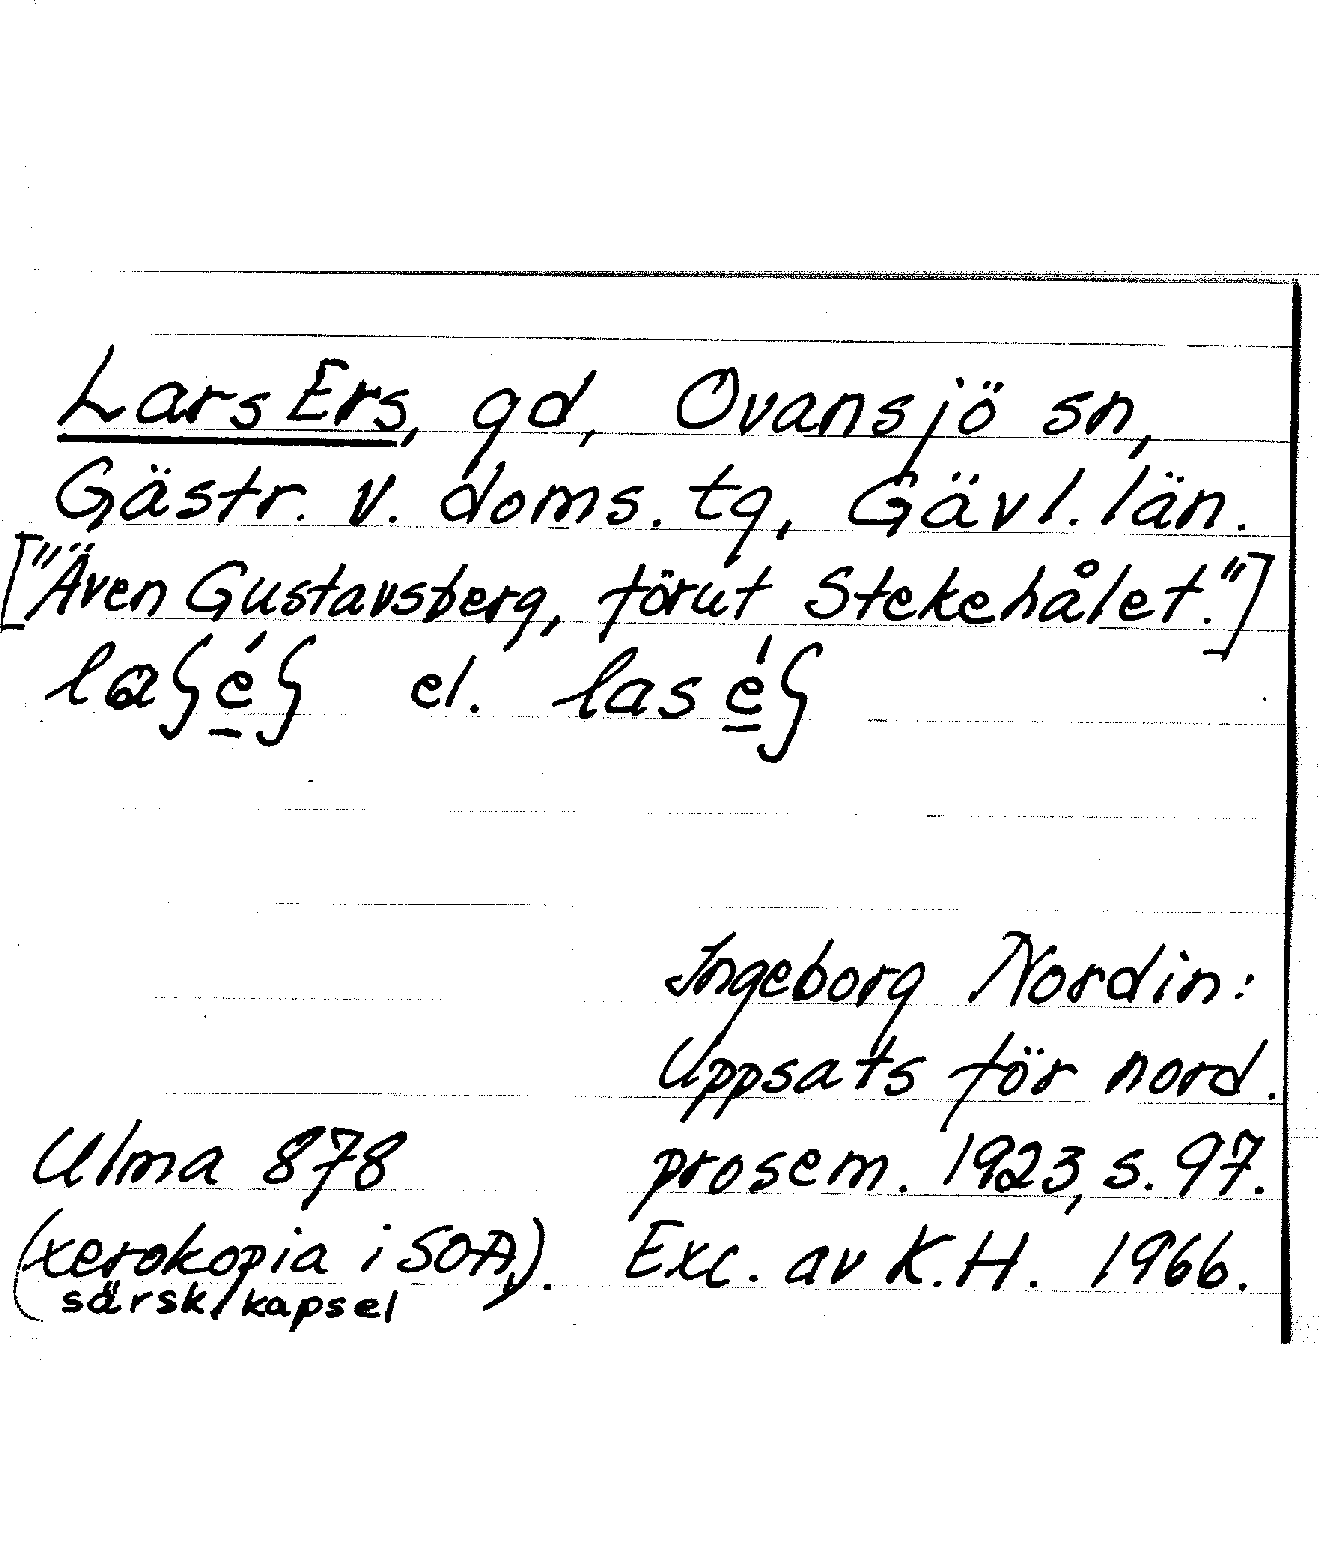 Lars Ers, gd, Ovansjö sn,
Gästr. v. doms. tg, Gävl. län.
["Även Gustavsberg, förut Stekehålet."]
laʃéʃ el. laséʃ
Ingeborg Nordin:
Uppsats för nord.
prosem. 1923, s. 97.
Exc. av K.H. 1966.
Ulma 878
(xerokopia i SOA,
särsk. kapsel).